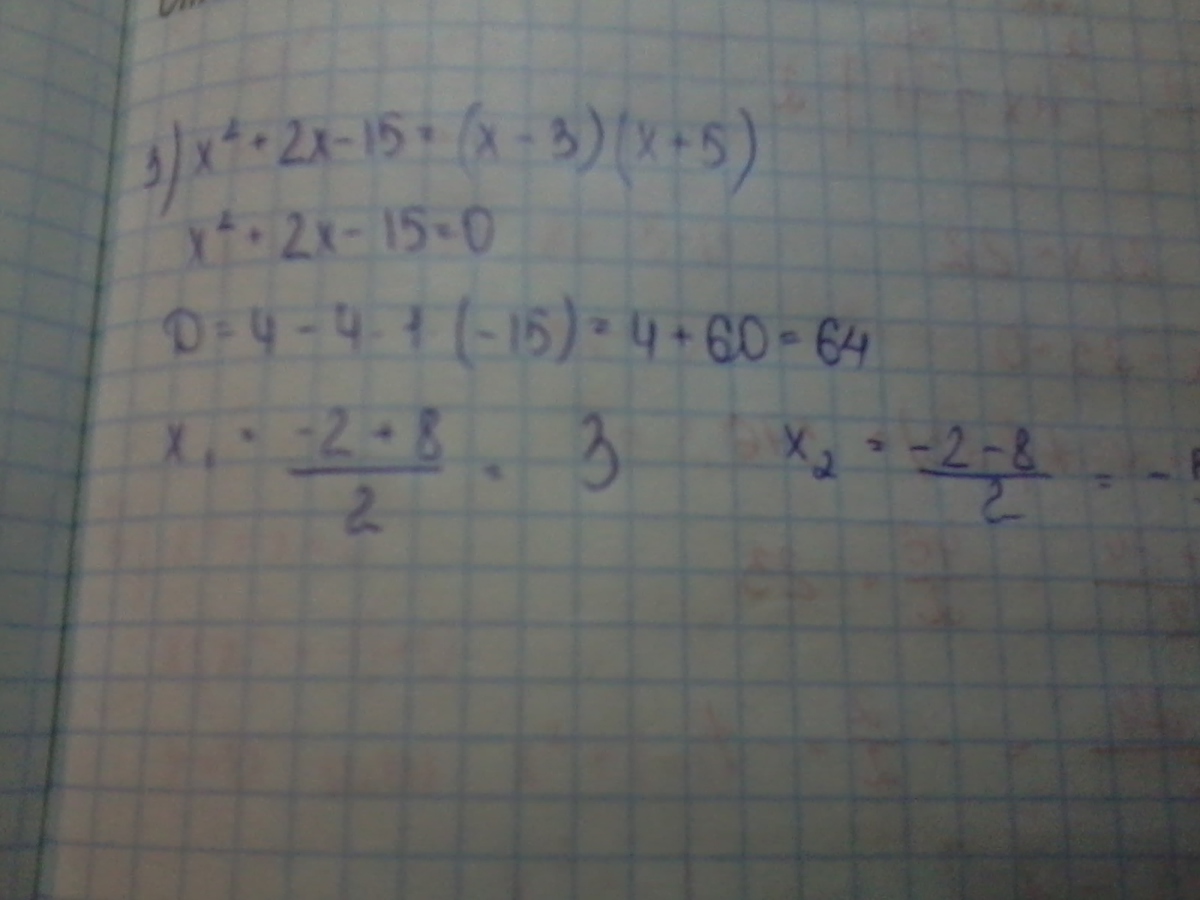 3) x² + 2x - 15 = (x - 3)(x + 5)
x² + 2x - 15 = 0
D = 4 - 4 · 1 · (-15) = 4 + 60 = 64
x₁ = (-2 + 8)/2 = 3 x₂ = (-2 - 8)/2 = -